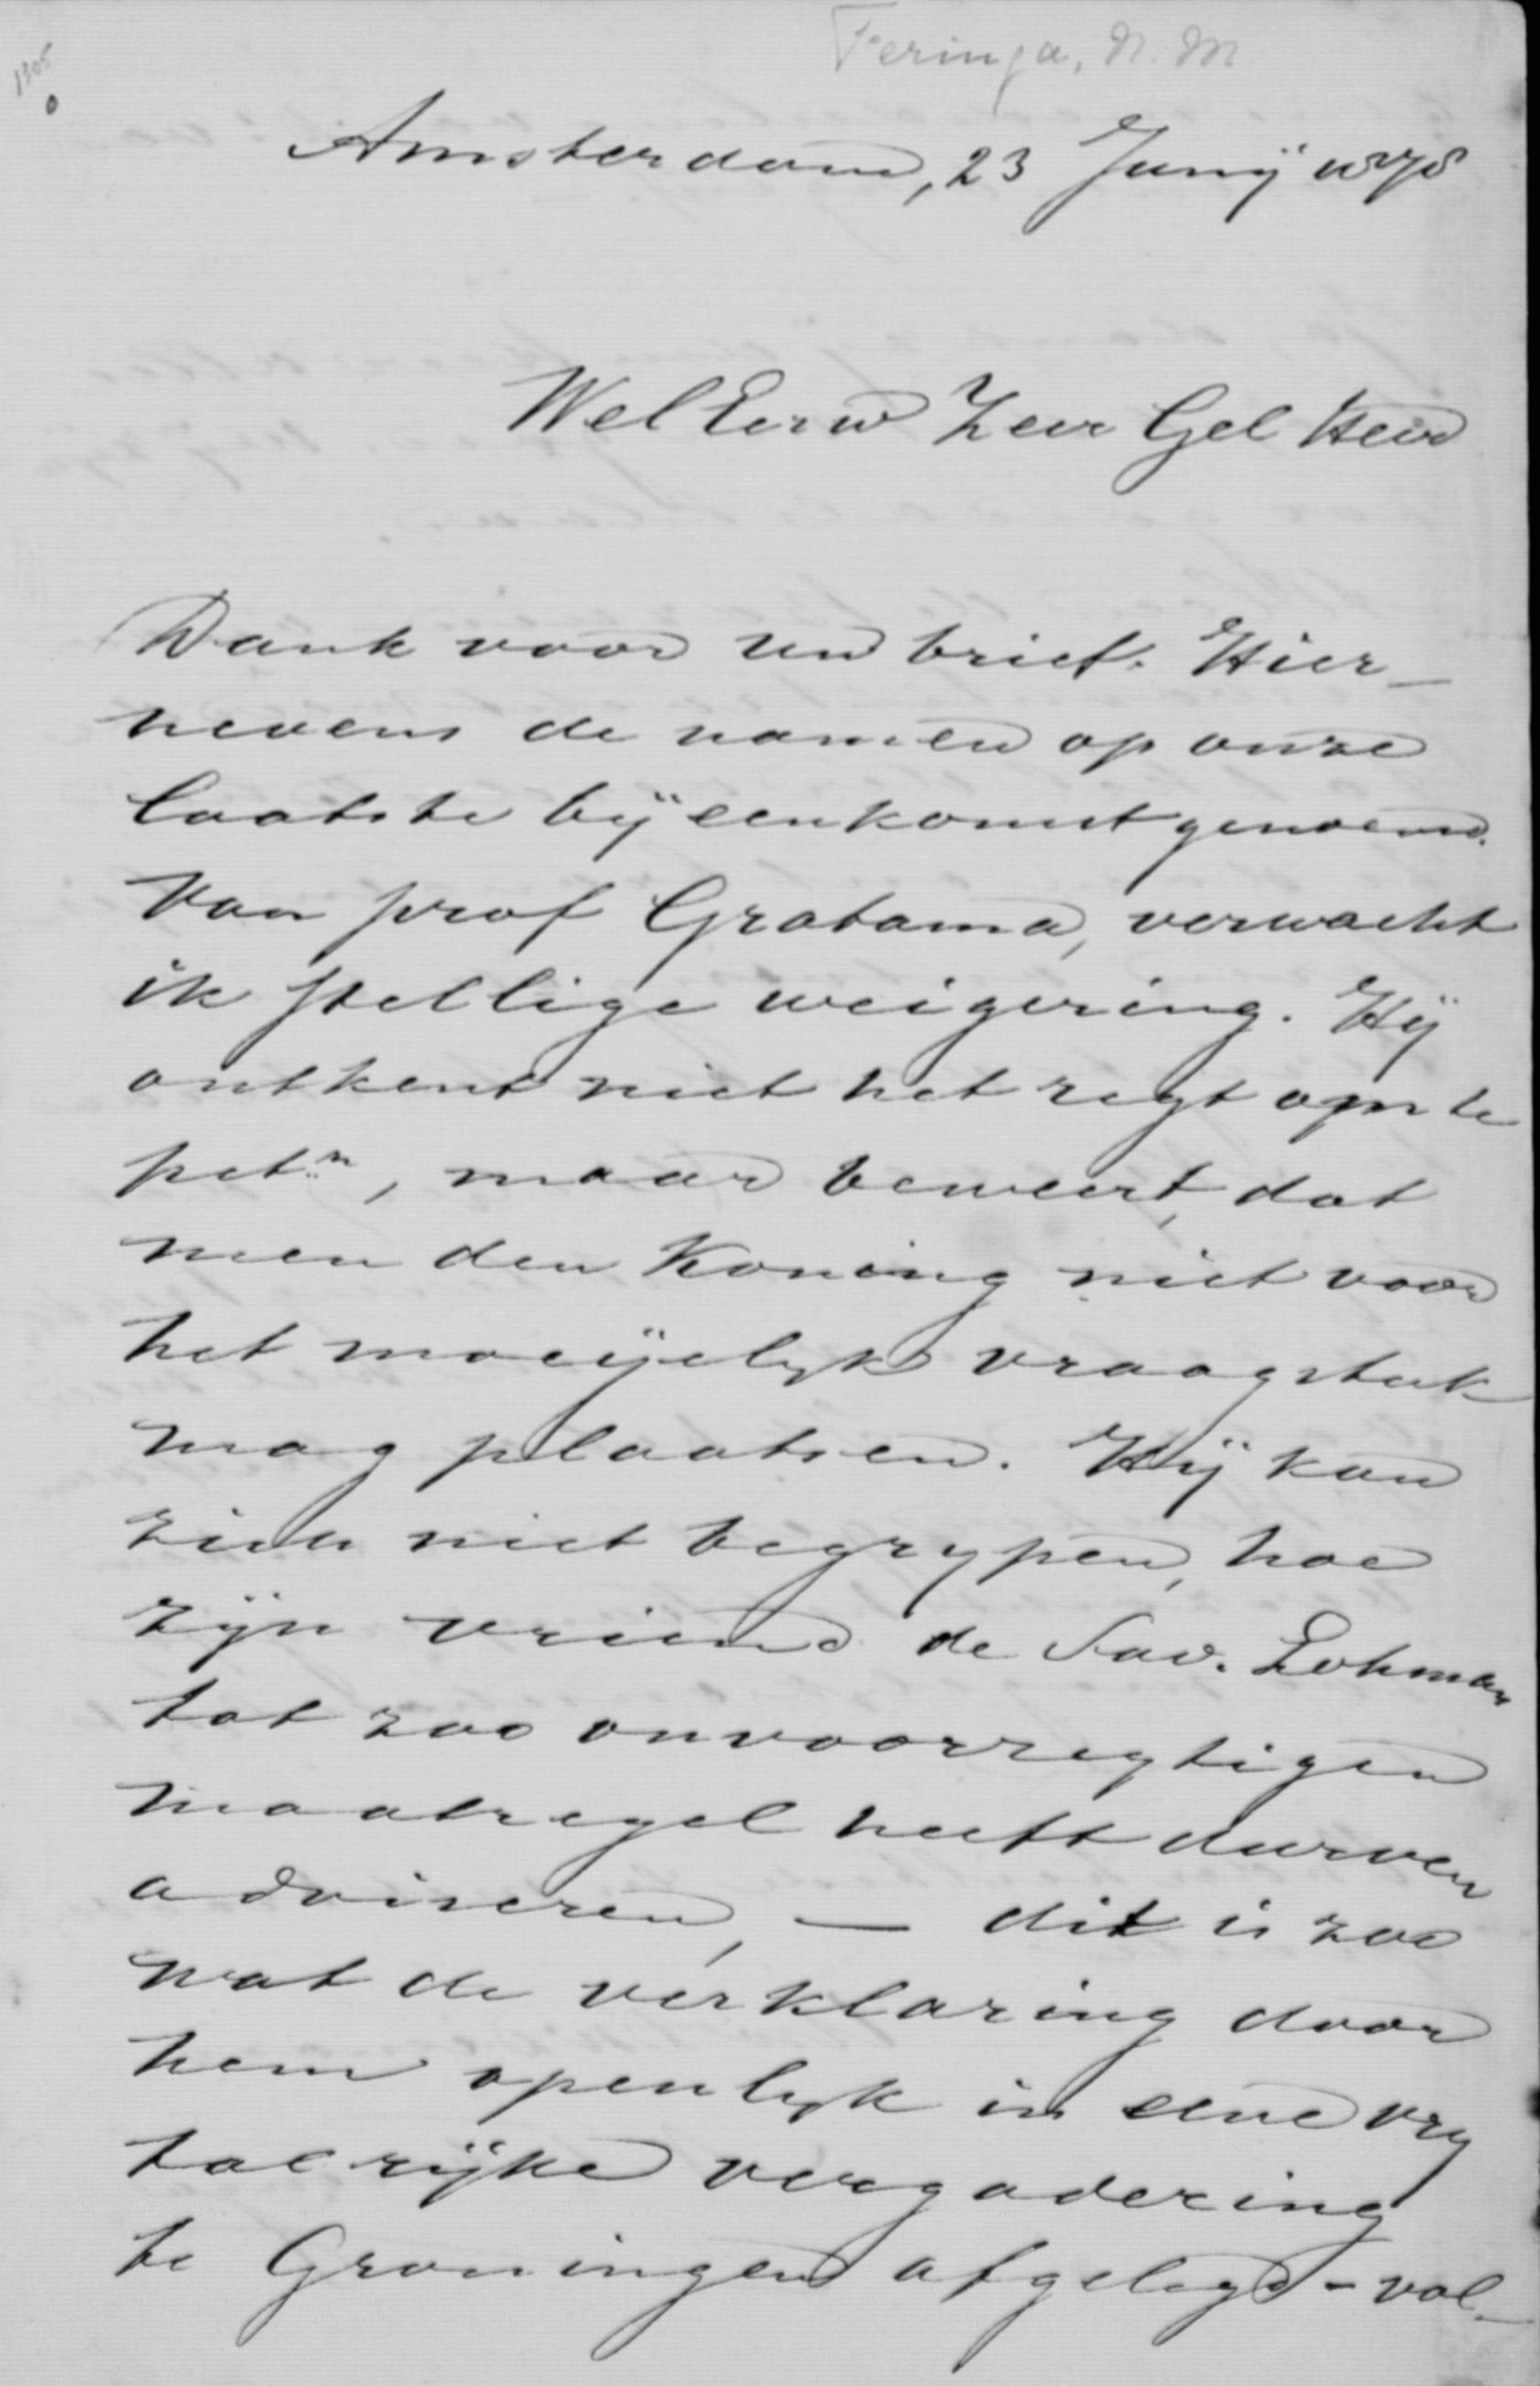 Feringa, N. M.
1805
Amsterdam, 23 Junij 1878
WelEerw Zeer Gel Heer
Dank voor uw brief. Hier-
nevens de namen op onze
laatste bijeenkomst genoemd.
Van prof Gratama, verwacht
ik stellige weigering. Hij
ontkent niet het regt om te
petn, maar beweert, dat
men den Koning niet voor
het moeijelyk vraagstuk
mag plaatsen. Hij kan
zich niet begrypen, hoe
zijn vriend de Sav. Lohman
tot zoo onvoorzigtigen
maatregel heeft durven
adviseren, — dit is zoo
wat de verklaring door
hem openlyk in eene vry
talrijke vergadering
te Groningen afgelegd - vol-